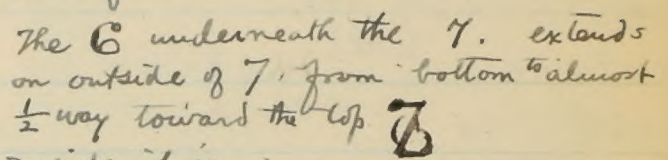 The 6 underneath the 7. extends
on outside of 7. from bottom to almost
½ way toward the top 7